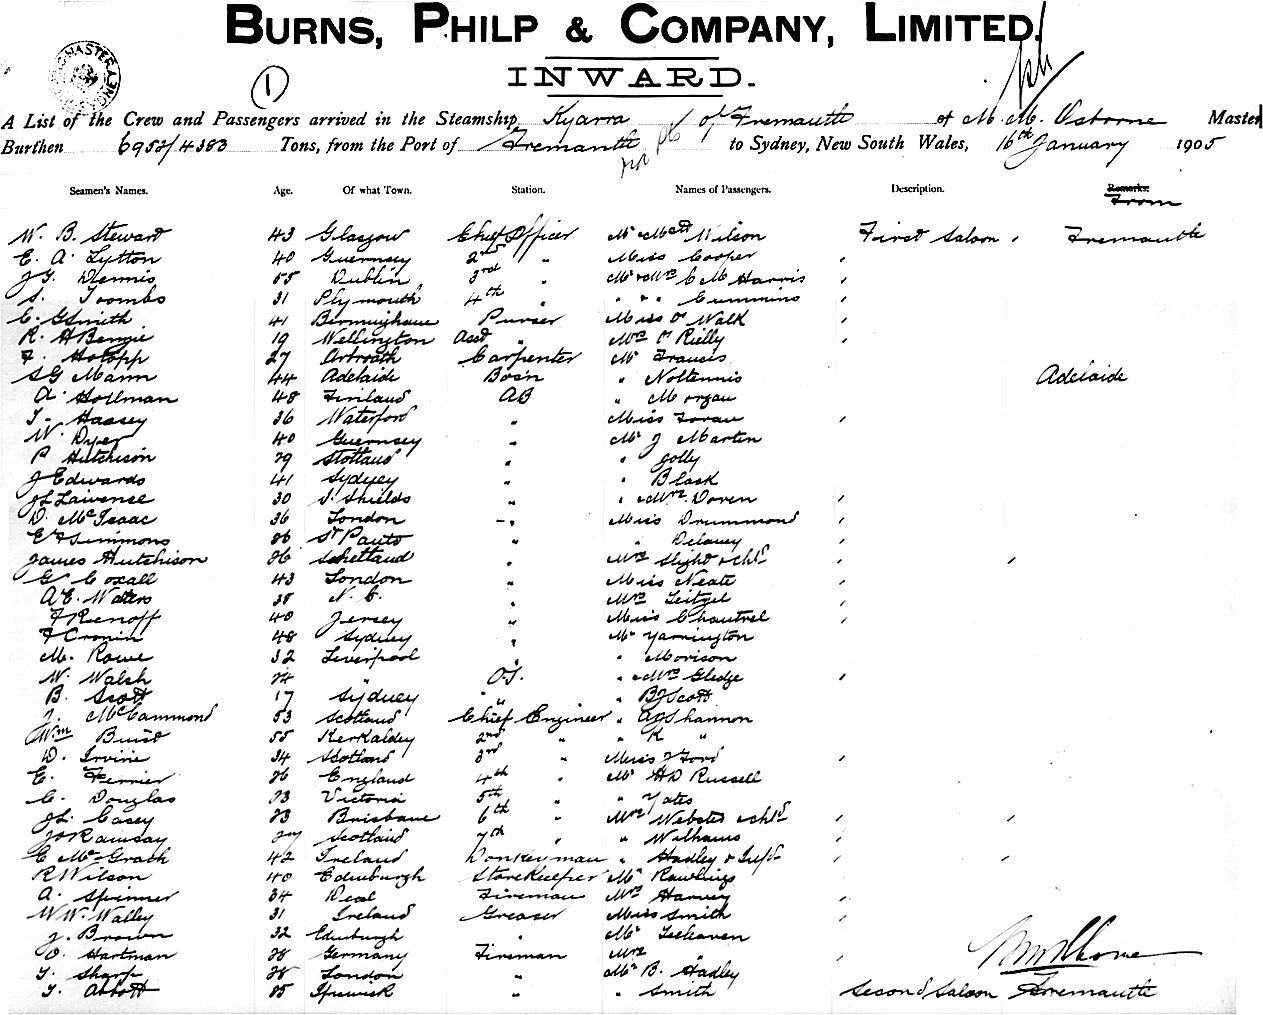 BURNS, PHILP & COMPANY, LIMITED.
INWARD.
1
A List of the Crew and Passengers arrived in the Steamship Kyarra of Fremantle of M. M. Osborne Master
Burthen 6953/4383 Tons, from the Port of Fremantle to Sydney, New South Wales, 16th January 1905
Seamen's Names. Age. Of what Town. Station. Names of Passengers. Description. Remarks.
From
W. B. Steward 43 Glasgow Chief Officer Mr & Mrs Wilson First Saloon Fremantle
E. A. Lytton 40 Guernsey 2nd " Miss Cooper
J. G. Dennis 55 Dublin 3rd Mr & Mrs C M Harris
S. Toombs 31 Plymouth 4th " " " " Cummins
C. G Smith 41 Birmingham Purser Miss O' Walk
R. H Bengie 19 Wellington Asst " Mrs O' Rielly
F. Hotopp 27 Arbroath Carpenter Mr Francis
S G Mann 44 Adelaide Bos'n " Noltennis Adelaide
A Hollman 48 Finland AB " Morgan
T. Hassey 36 Waterford " Miss
W. Dyer 40 Guernsey " Mr J Martin
P Hutchison 29 Scotland " " Jolly
J Edwards 41 Sydney " " Black
J L Lawrence 30 S. Shields " " & Mrs Doven
D. McIsaac 36 London " Miss Drummond
E F Simmons 26 " " Delaney
James Hutchison 26 Schetland " Mrs Slight & chld
G Coxall 43 London " Miss Neate
A E. Waters 38 N. C. " Mrs Teitzel
F Renoff 40 Jersey " Miss Chantrel
F Cronin 48 Sydney " Mr Yarrington
M. Rowe 32 Liverpool " " Morison
W. Walsh 24 " O.S. " & Mrs Gledge
B. Scott 17 Sydney " " B J Scott
J. McCammond 53 Scotland Chief Engineer " A G Shannon
Wm Buist 55 Kerkaldey 2nd " " K "
D. Irvine 34 Scotland 3rd Miss J Ford
E. Ferrier 26 England 4th " Mr H D Russell
C. Douglas 23 Victoria 5th " " Yates
J L Casey 23 Brisbane 6th " Mrs Webster & chld
J Ramsay 27 Scotland 7th " " Williams
C McGrath 42 Ireland Donkeyman " Hadley & Inft
R Wilson 40 Edinburgh Storekeeper Mr Rawlings
A. Spinner 34 Deal Fireman Mrs Harvey
W W. Walley 31 Ireland Greaser Miss Smith
J. Brown 32 Edinburgh " Mr Teehaven
O. Hartman 28 Germany Fireman Mrs "
T. Sharp 28 London " Mr B. Hadley
T. Abbott 25 Ipswick " " Smith Second Saloon Fremantle